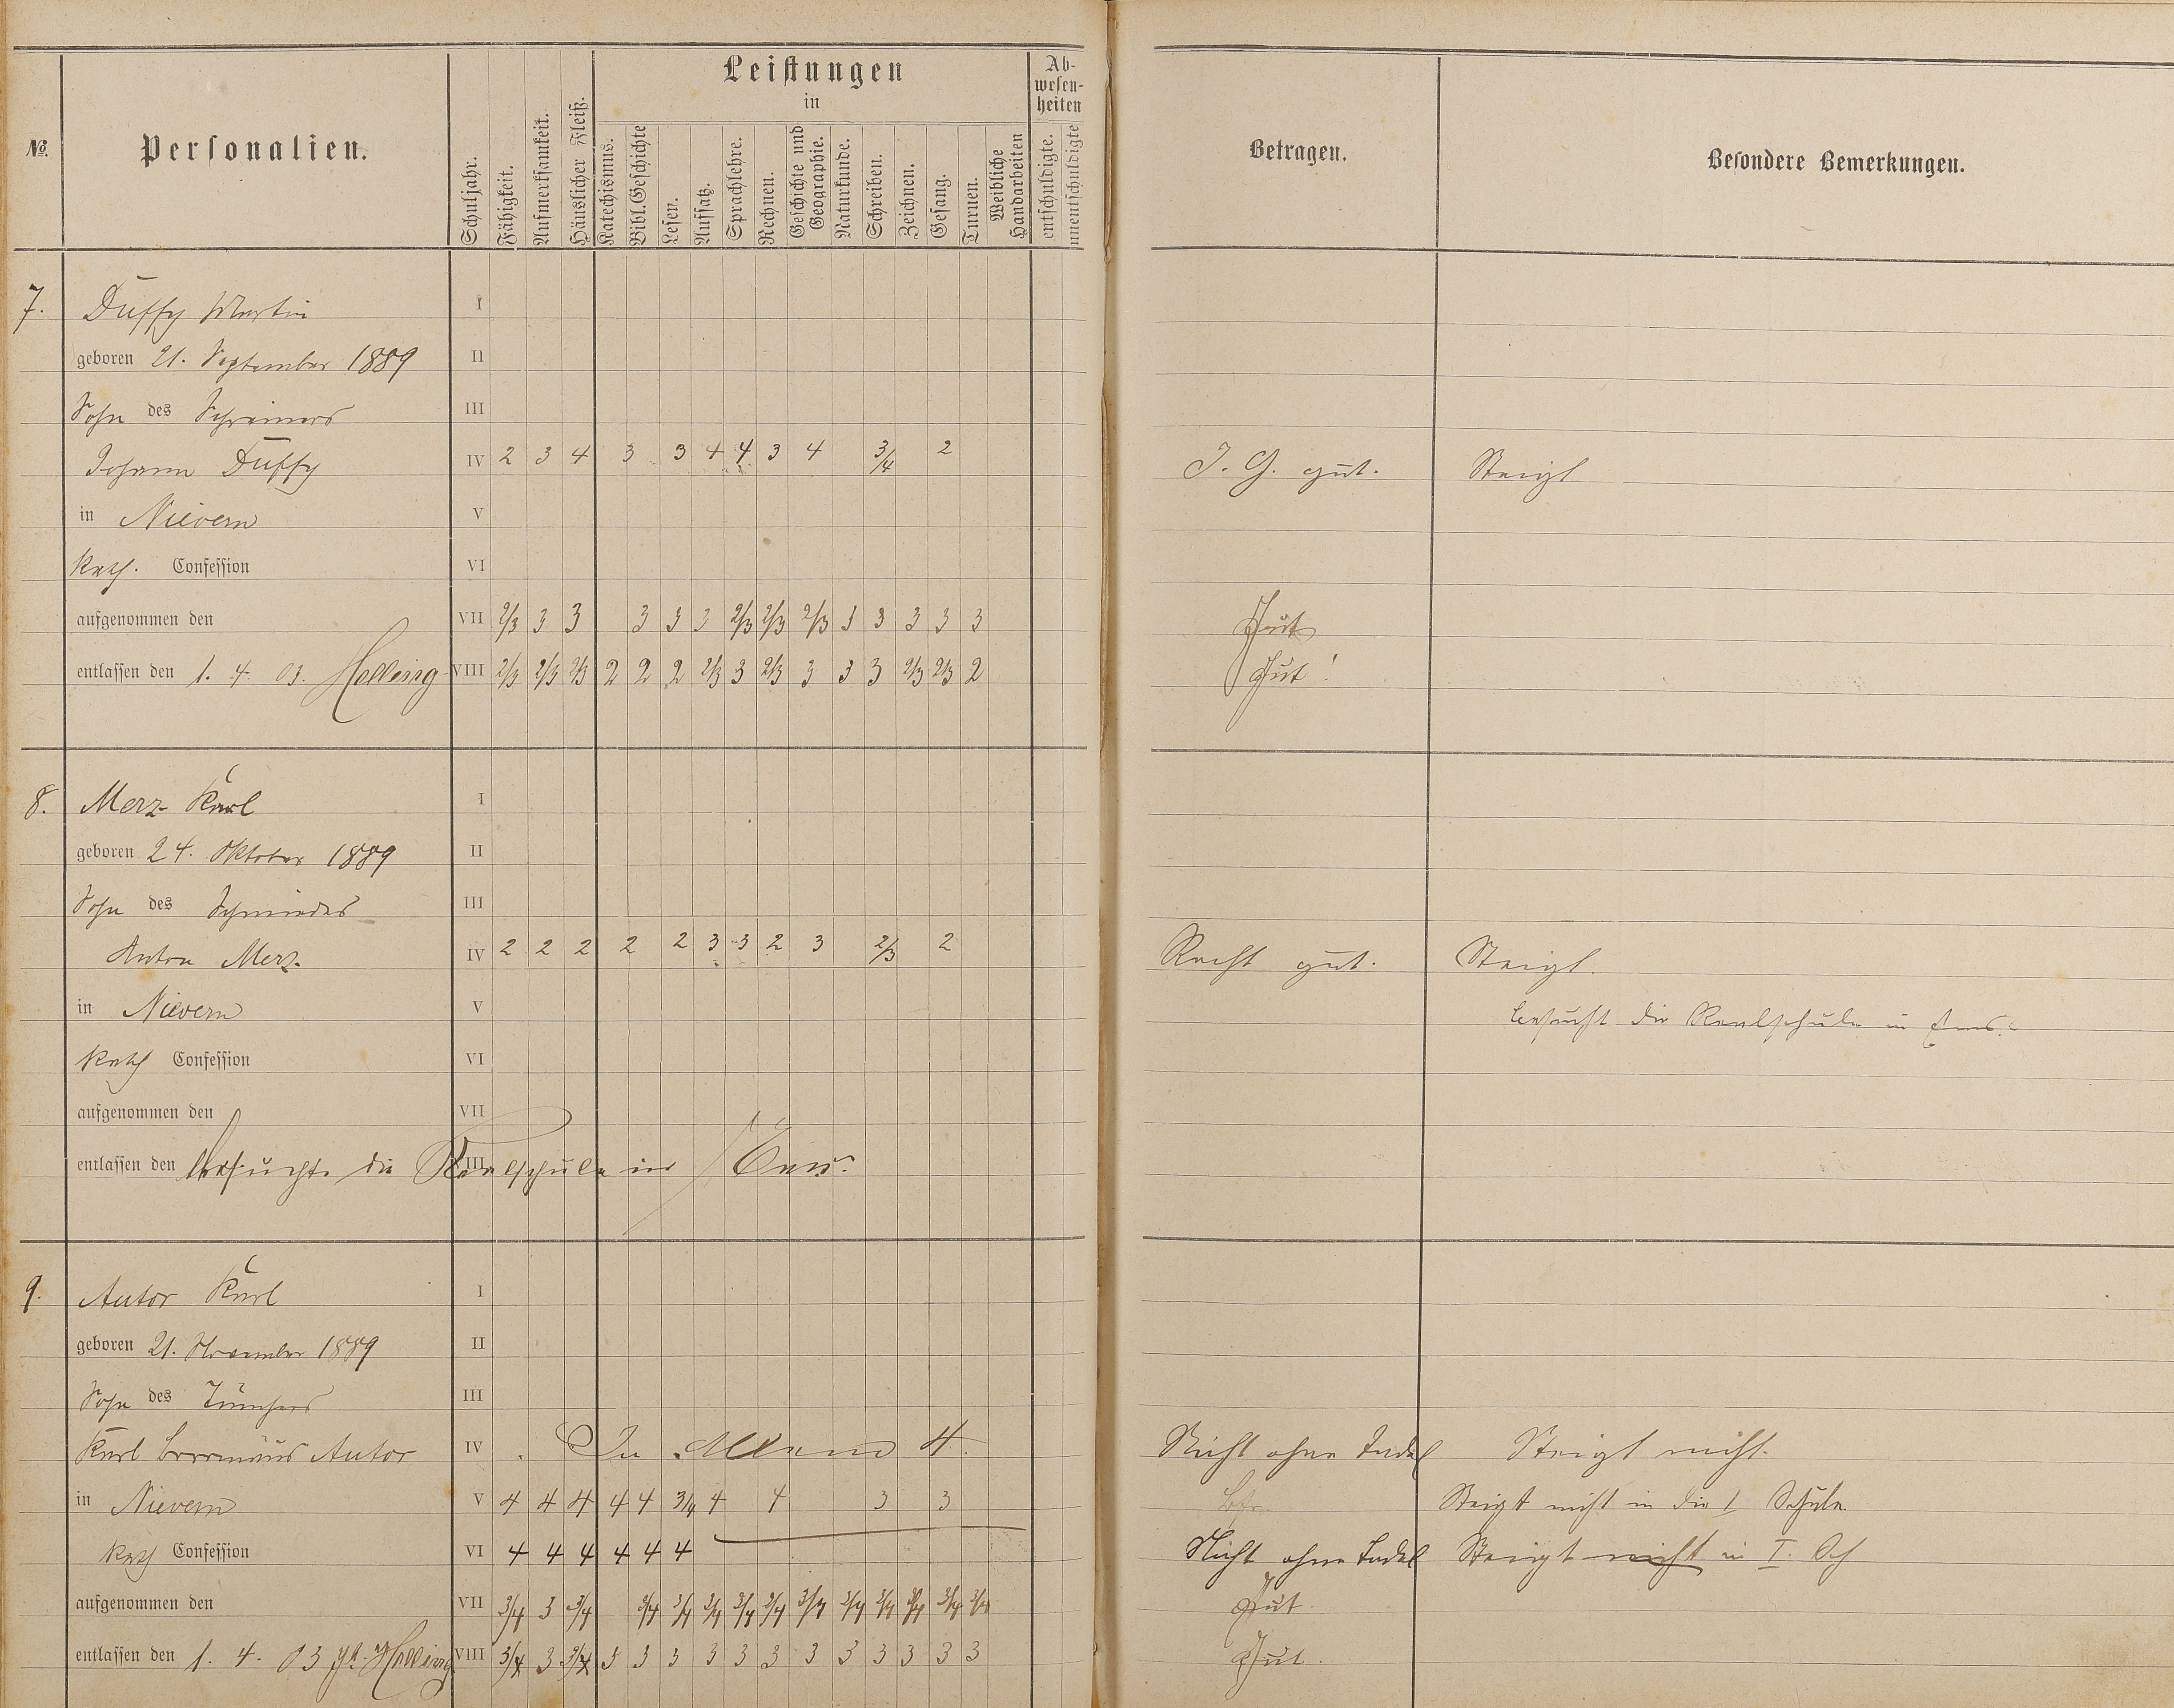 №.
Personalien.
Schuljahr.
Fähigkeit.
Aufmerksamkeit.
Häuslicher Fleiß.
Leistungen
in
Katechismus.
Bibl. Geschichte
Lesen.
Aufsatz.
Sprachlehre.
Rechnen.
Geschichte und
Geographie.
Naturkunde.
Schreiben.
Zeichnen.
Gesang.
Turnen.
Weibliche
Handarbeiten
Ab-
wesen-
heiten
entschuldigte.
unentschuldigte
Betragen.
Besondere Bemerkungen.
7. Duffy Martin I
geboren 21. September 1889 II
Sohn des Schreiners III
Johann Duffy IV 2 3 4 3 3 4 4 3 4 3/4 2 I. G. gut. Steigt
in Nievern V
Kath. Confession VI
aufgenommen den VII 2/3 3 3 3 3 3 2/3 2/3 2/3 3 3 3 3 3 Gut
entlassen den 1. 4. 03. Helling VIII 2/3 2/3 2/3 2 2 2 2/3 3 2/3 3 3 3 2/3 2/3 2 Gut!
8. Merz Karl I
geboren 24. Oktober 1889 II
Sohn des Schmiedes III
Anton Merz. IV 2 2 2 2 2 3 3 2 3 2/3 2 Recht gut. Steigt.
in Nievern V besucht die Realschule in Ems.
Kath Confession VI
aufgenommen den VII
entlassen den besuchte die Realschule in Ems. VIII
9. Autor Karl I
geboren 21. November 1889 II
Sohn des Tünchers III
Karl Autor IV In Allem 4. Nicht ohne Tadel Steigt nicht.
in Nievern V 4 4 4 4 4 3/4 4 4 3 3 Steigt nicht in die I Schule
Kath Confession VI 4 4 4 4 4 4 Nicht ohne Tadel Steigt nicht in I. Sch
aufgenommen den VII 3/4 3 3/4 3/4 3/4 3/4 3/4 3/4 3/4 3/4 3/4 3/4 3/4 3/4 Gut.
entlassen den 1. 4. 03 Helling VIII 3/4 3 3/4 3 3 3 3 3 3 3 3 3 3 3 3 Gut.